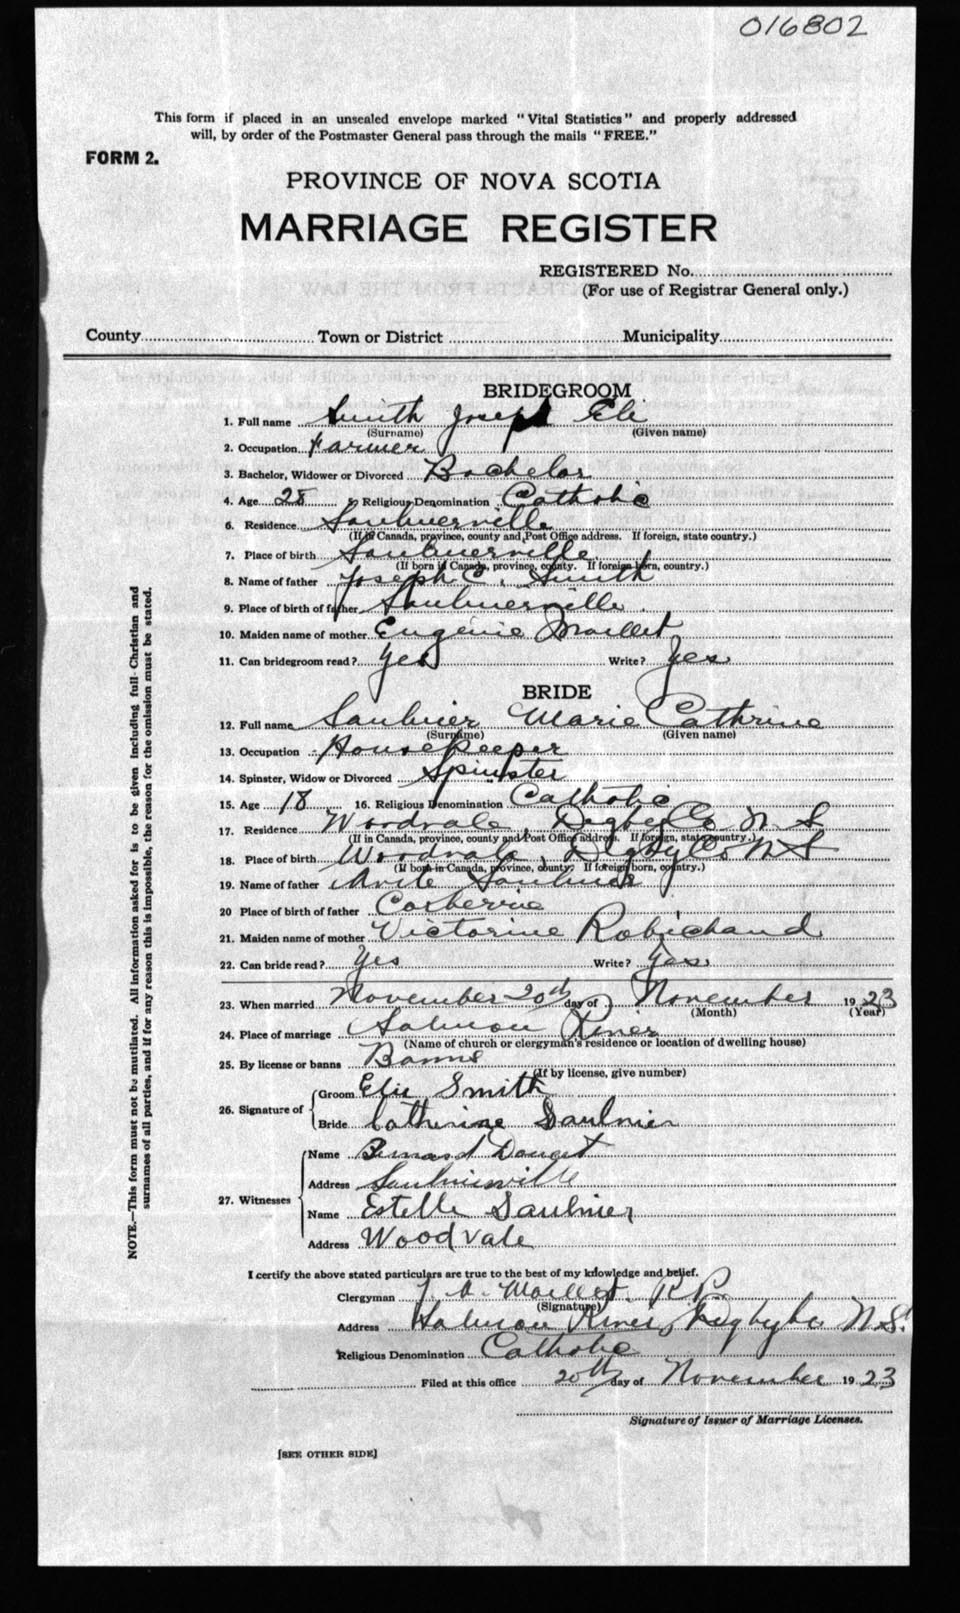 016802
This form if placed in an unsealed envelope marked "Vital Statistics" and properly addressed
will, by order of the Postmaster General pass through the mails "FREE."
FORM 2.
PROVINCE OF NOVA SCOTIA
MARRIAGE REGISTER
REGISTERED No.
(For use of Registrar General only.)
County Town or District Municipality
BRIDEGROOM
1. Full name Smith Joseph Eli
(Surname) (Given name)
2. Occupation Farmer
3. Bachelor, Widower or Divorced Bachelor
4. Age 28 5. Religious Denomination Catholic
6. Residence Saulnierville
(If in Canada, province, county and Post Office address. If foreign, state country.)
7. Place of birth Saulnierville
(If born in Canada, province, county. If foreign born, country.)
8. Name of father Joseph C. Smith
9. Place of birth of father Saulnierville
10. Maiden name of mother Eugénie Maillet
11. Can bridegroom read? Yes Write? Yes
BRIDE
12. Full name Saulnier Marie Cathrine
(Surname) (Given name)
13. Occupation Housekeeper
14. Spinster, Widow or Divorced Spinster
15. Age 18 16. Religious Denomination Catholic
17. Residence Woodvale, Digby Co N S
(If in Canada, province, county and Post Office address. If foreign, state country.)
18. Place of birth Woodvale, Digby Co N S
(If born in Canada, province, county. If foreign born, country.)
19. Name of father Avite Saulnier
20 Place of birth of father Corberrie
21. Maiden name of mother Victorine Robichaud
22. Can bride read? Yes Write? Yes
23. When married November 20th day of November 1923
(Month) (Year)
24. Place of marriage Salmon River
(Name of church or clergyman's residence or location of dwelling house)
25. By license or banns Banns
(If by license, give number)
26. Signature of
Groom Elie Smith
Bride Catherine Saulnier
27. Witnesses
Name Bernard Doucet
Address Saulnierville
Name Estelle Saulnier
Address Woodvale
I certify the above stated particulars are true to the best of my knowledge and belief.
Clergyman J. A. Maillet. P.P.
(Signature)
Address Salmon River, Digby Co N.S.
Religious Denomination Catholic
Filed at this office 20th day of November 1923
Signature of Issuer of Marriage Licenses.
[SEE OTHER SIDE]
NOTE.—This form must not be mutilated. All information asked for is to be given including full Christian and
surnames of all parties, and if for any reason this is impossible, the reason for the omission must be stated.